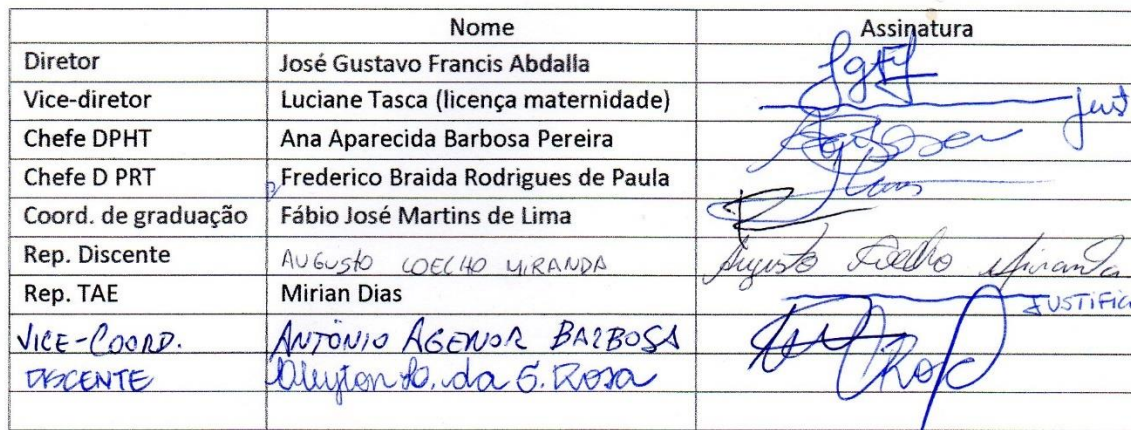 Nome Assinatura
Diretor José Gustavo Francis Abdalla
Vice-diretor Luciane Tasca (licença maternidade) just
Chefe DPHT Ana Aparecida Barbosa Pereira
Chefe D PRT Frederico Braida Rodrigues de Paula
Coord. de graduação Fábio José Martins de Lima
Rep. Discente AUGUSTO COELHO MIRANDA Augusto Coelho Miranda
Rep. TAE Mirian Dias JUSTIFIC
VICE-COORD. ANTÔNIO AGENOR BARBOSA
DISCENTE da S. Rosa